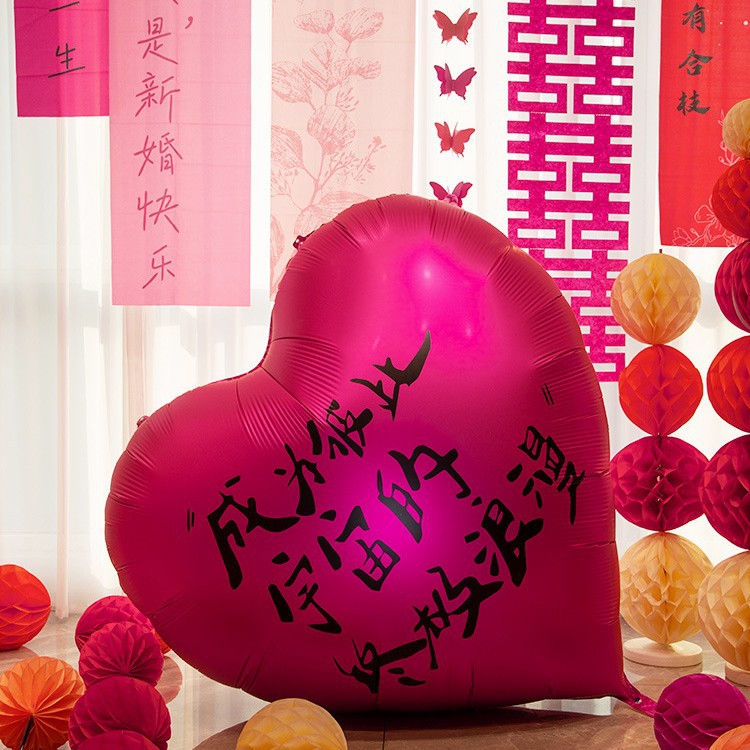 一生
是新婚快乐
囍
囍
有合枝
成为彼此
宇宙的
终极浪漫